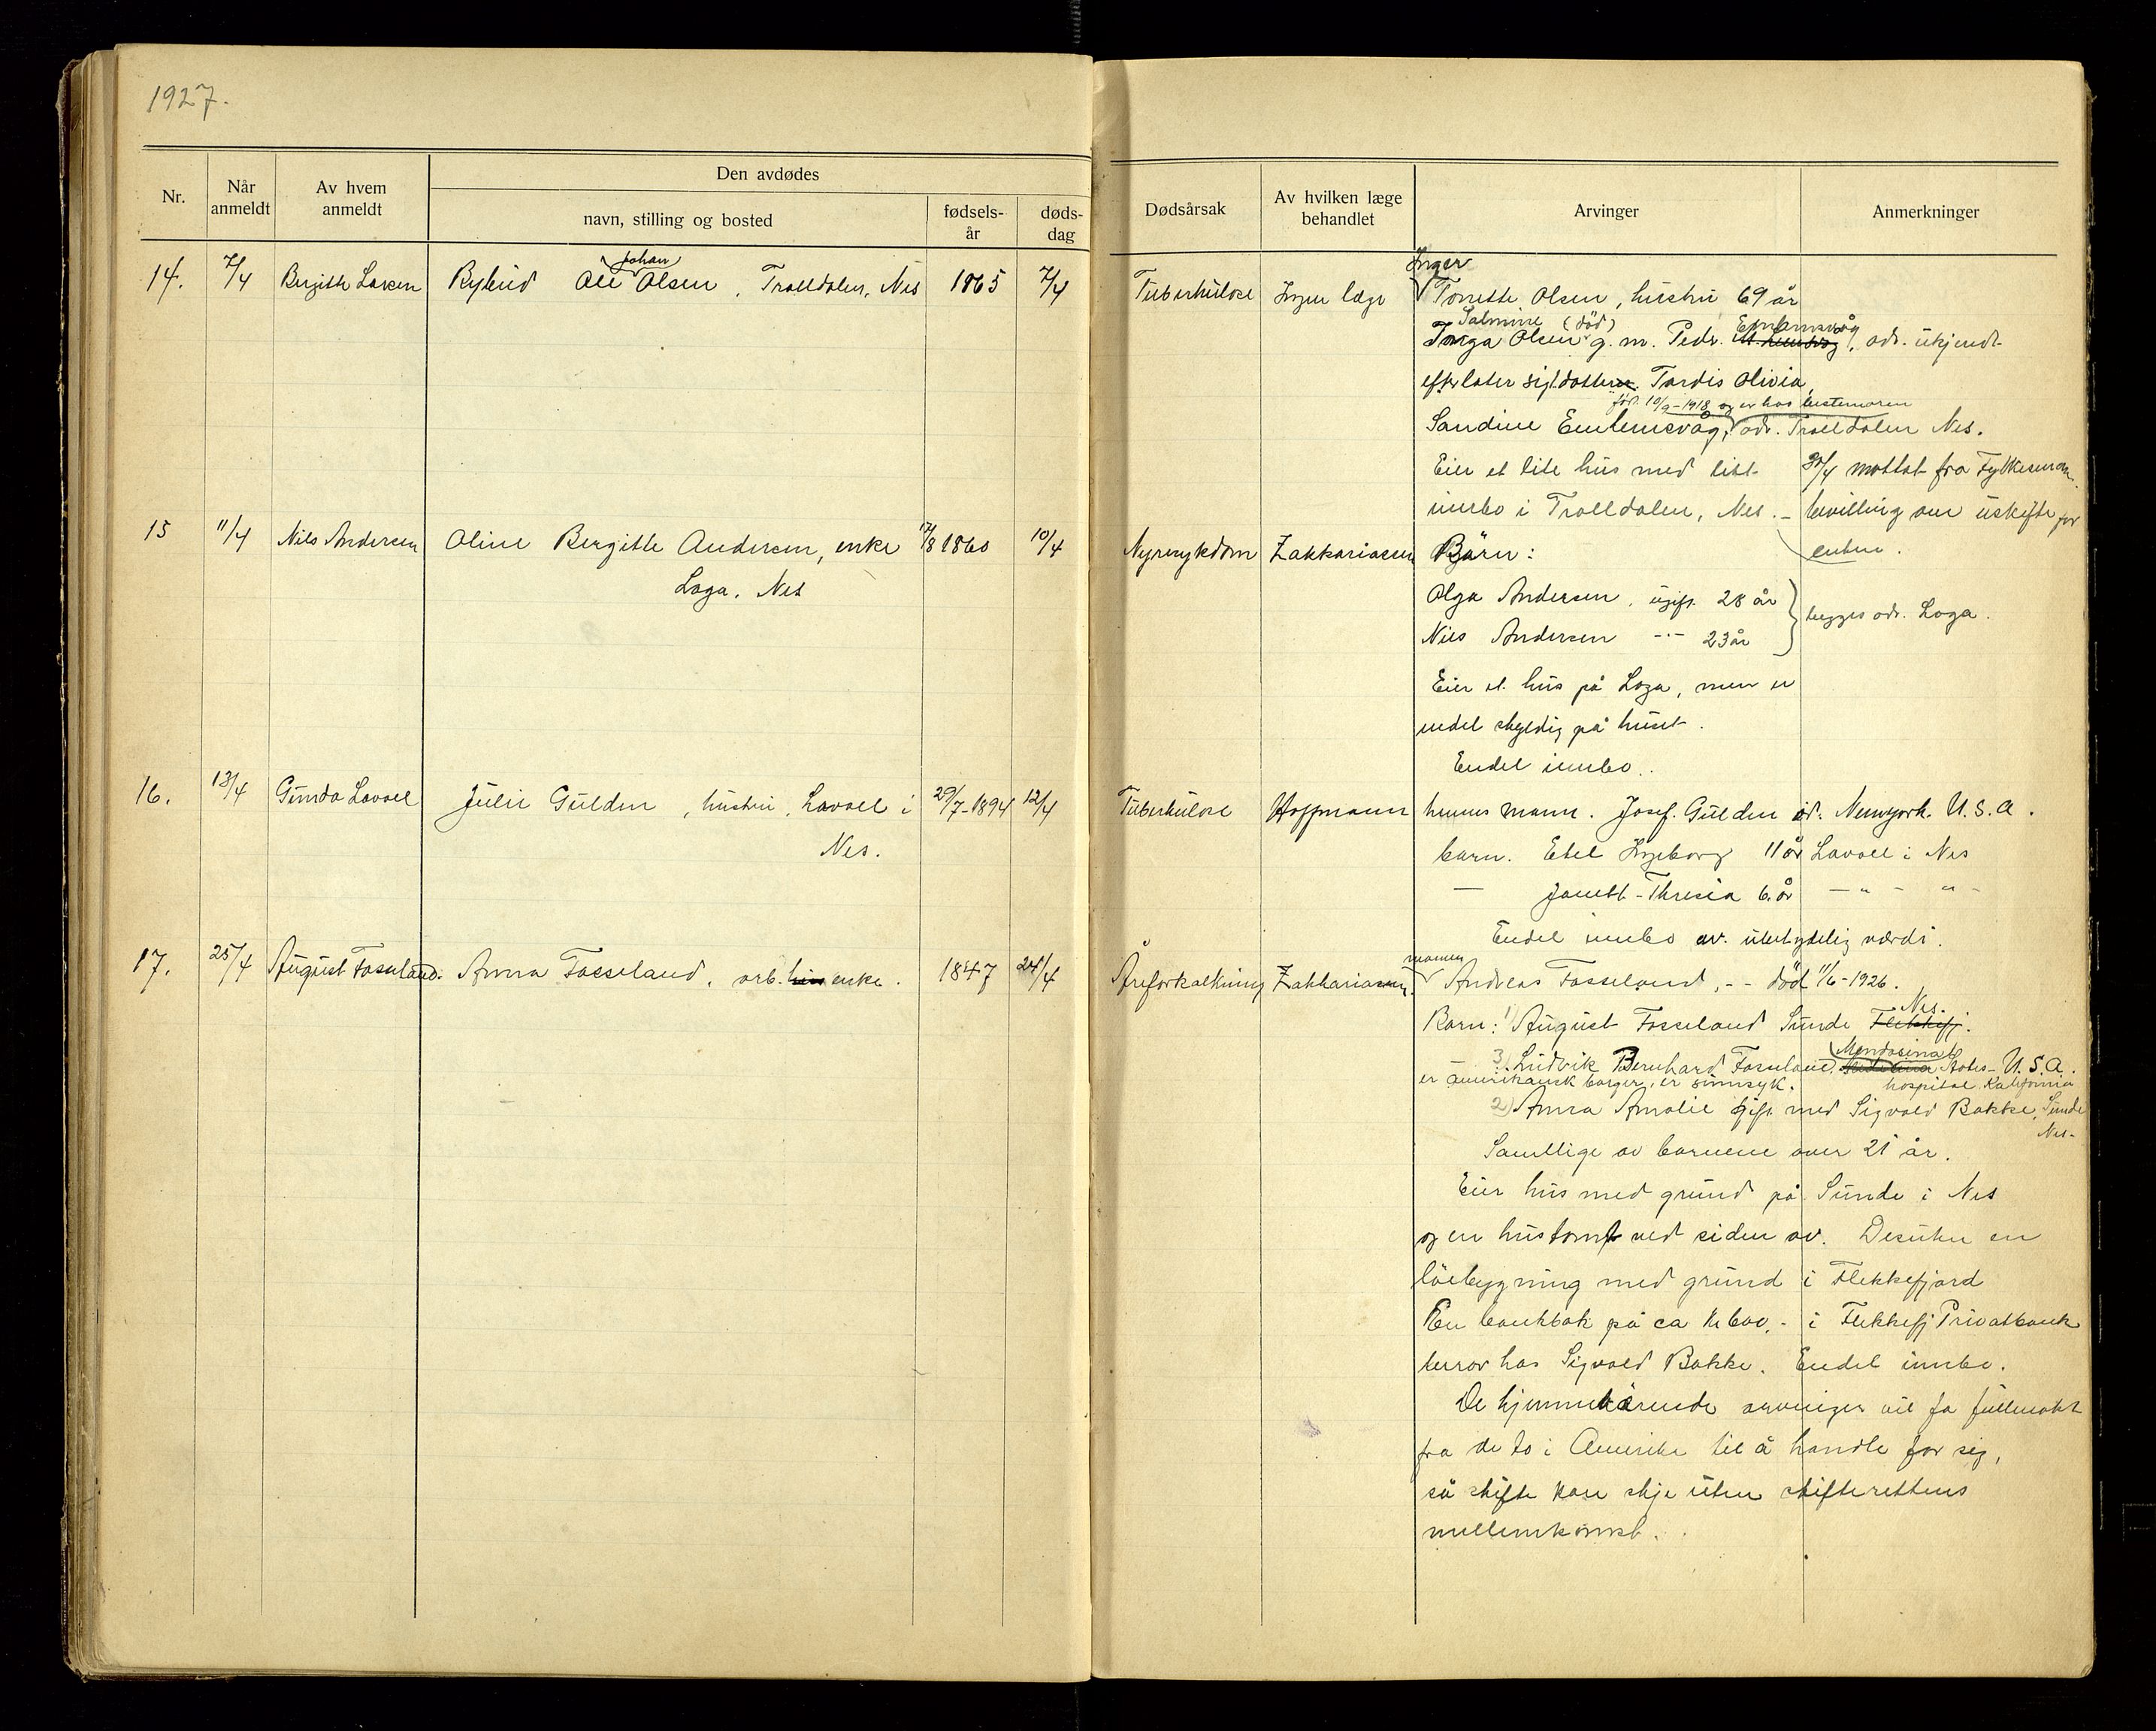 1927.
Nr.
Når anmeldt
Av hvem anmeldt
Den avdødes
navn, stilling og bosted
fødsels-år
døds-dag
Dødsårsak
Av hvilken læge behandlet
Arvinger
Anmerkninger
14. 7/4 Birgitte Larsen Rybud Ole Johan Olsen, Trolldalen, Nes 1865 7/4 Tuberkulose Ingen læge
Inger
Tonette Olsen, hustru 69 år
Salmine (död)
Olsen g. m. Peder adr. ukjendt
efterlater sig datter Tordis Olivia
föd. 10/9-1918 og er hos bestemoren
Sandine Eentemsvåg, adr. Trolldalen Nes.
Eier et lite hus med litt
30/4 mottat fra Fylkesman
innbo i Trolldalen, Nes. –
bevilling om uskifte for
enken.
15 11/4 Nils Andersen Oline Bergitte Andersen, enke 17/8 1860 10/4 Nyresykdom Zakkariassen Barn:
Loga. Nes
Olga Andersen, ugift 28 år
begges adr. Loga.
Nils Andersen -"- 23 år
Eier et hus på Loga, men er
endel skyldig på huset.
Endel innbo.
16. 13/4 Gunda Lavoll Julie Gulden, hustru, Lavoll i 29/7-1894 12/4 Tuberkulose Hoffmann hennes mann. Josef. Gulden ad. Newyork. U.S.A.
Nes.
barn. Etel Ingeborg 11 år Lavoll i Nes
— Janett-Thresia 6. år — " - " -
Endel innbo av ubetydelig værdi.
17. 25/4 August Fosseland. Anna Fosseland, arb. enke. 1847 24/4 Åreforkalkning Zakkariassen.
mannen
Andreas Fosseland, -- död 11/6-1926.
Nes.
Barn: 1) August Fosseland Sunde Flekkefj.
Mendosina
3) Ludvik Bernhard Fosseland, States- U.S.A.
er amerikansk borger, er sinnsyk. hospital Kalifornia
2) Anna Amalie gift med Sigvald Bakke, Sunde
Nes-
Samtlige av barnene over 21 år.
Eier hus med grund på Sunde i Nes
og en hustomt ved siden av. Desuten en
löebygning med grund i Flekkefjord
En bankbok på ca kr 600,- i Flekkefj Privatbank
beror hos Sigvald Bakke. Endel innbo.
De hjemmeværende arvinger vil fa fullmakt
fra de to i Amerika til å handle for sig,
så skifte kan skje uten skifterettens
mellemkomst.